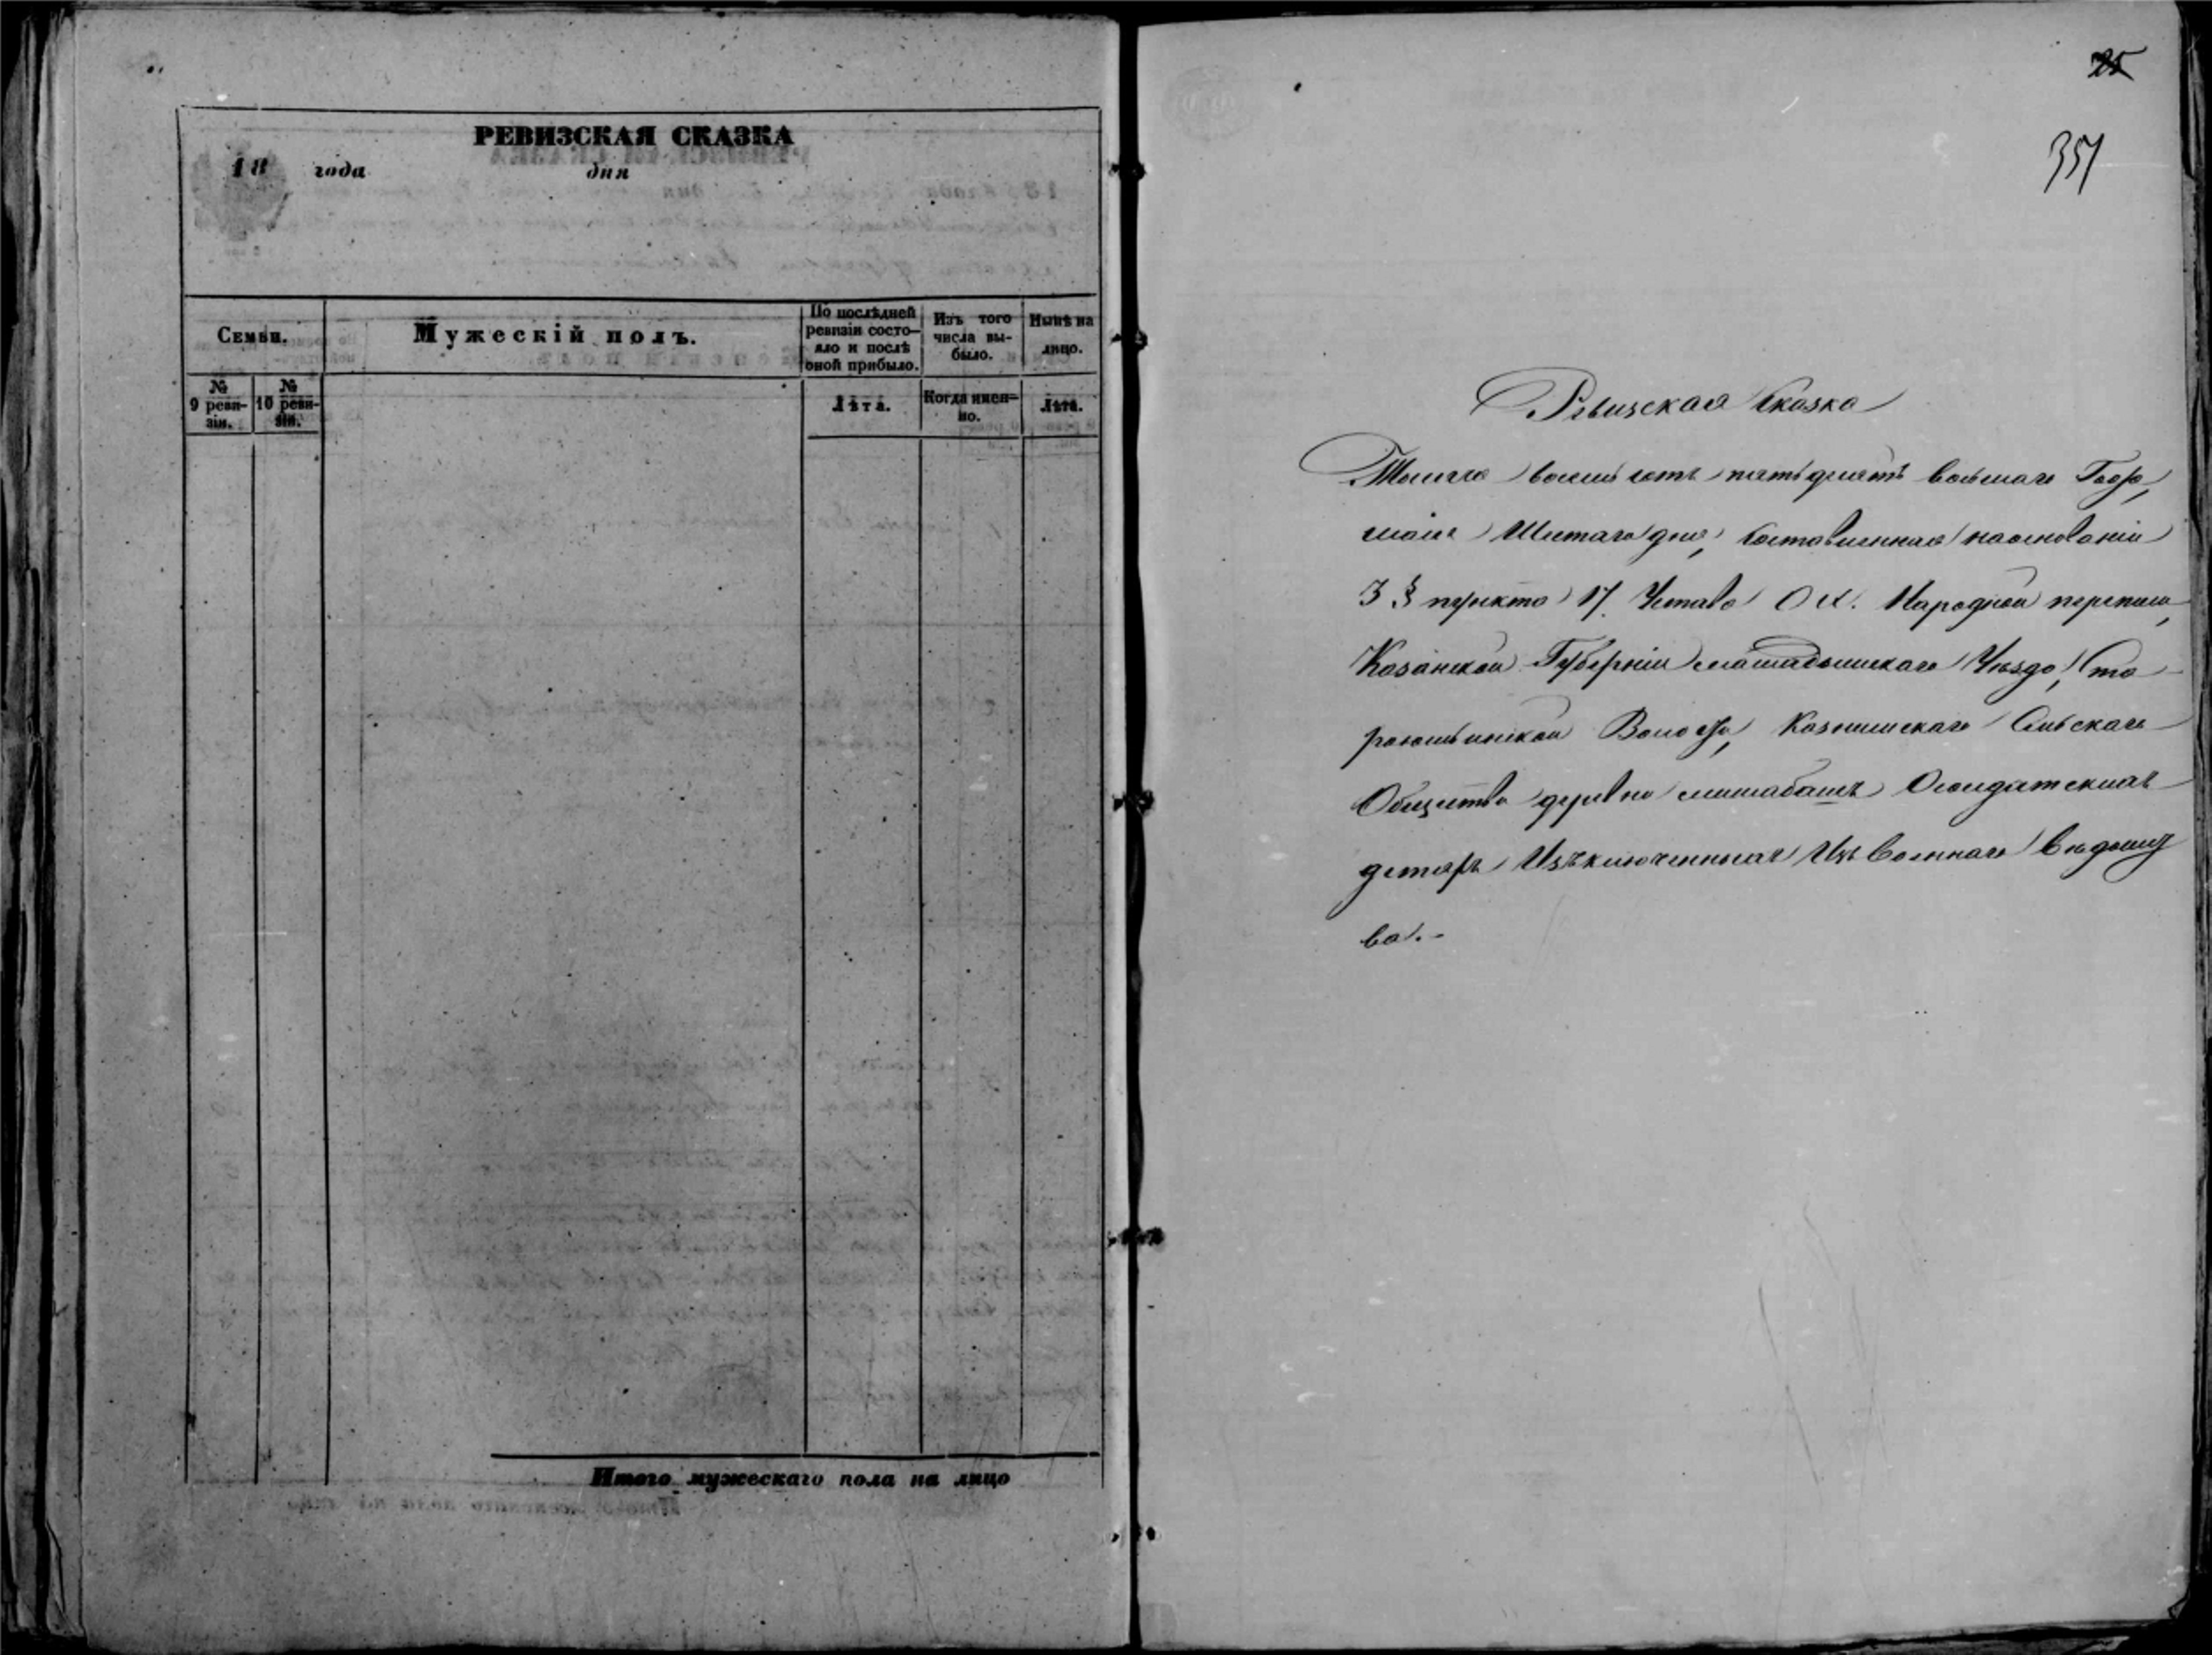 РЕВИЗСКАЯ СКАЗКА
18 года дня
Семьи.
Мужескій полъ.
По послѣдней ревизіи состо-
яло и послѣ
оной прибыло.
Изъ того
числа вы-
было.
Нынѣ на
лицо.
№
9 реви-
зіи.
№
10 реви-
зіи.
Лѣта.
Когда имен-
но.
Лѣта.
Итого мужескаго пола на лицо
25
351
Ревизская Сказка
Тысяча восемь сотъ пятьдесятъ восьмаго Года,
маія Шестаго дня, Составленная наоснованіи
3 § пункта 17. Устава О X. Народной переписи,
Казанской Губерніи мамадышскаго Уѣзда, Ста
Волости, Сельскаго
Общества деревни Солидатскихъ
детяхъ Изъключенныхъ Изъ Военнаго Вѣдомст
ва.-